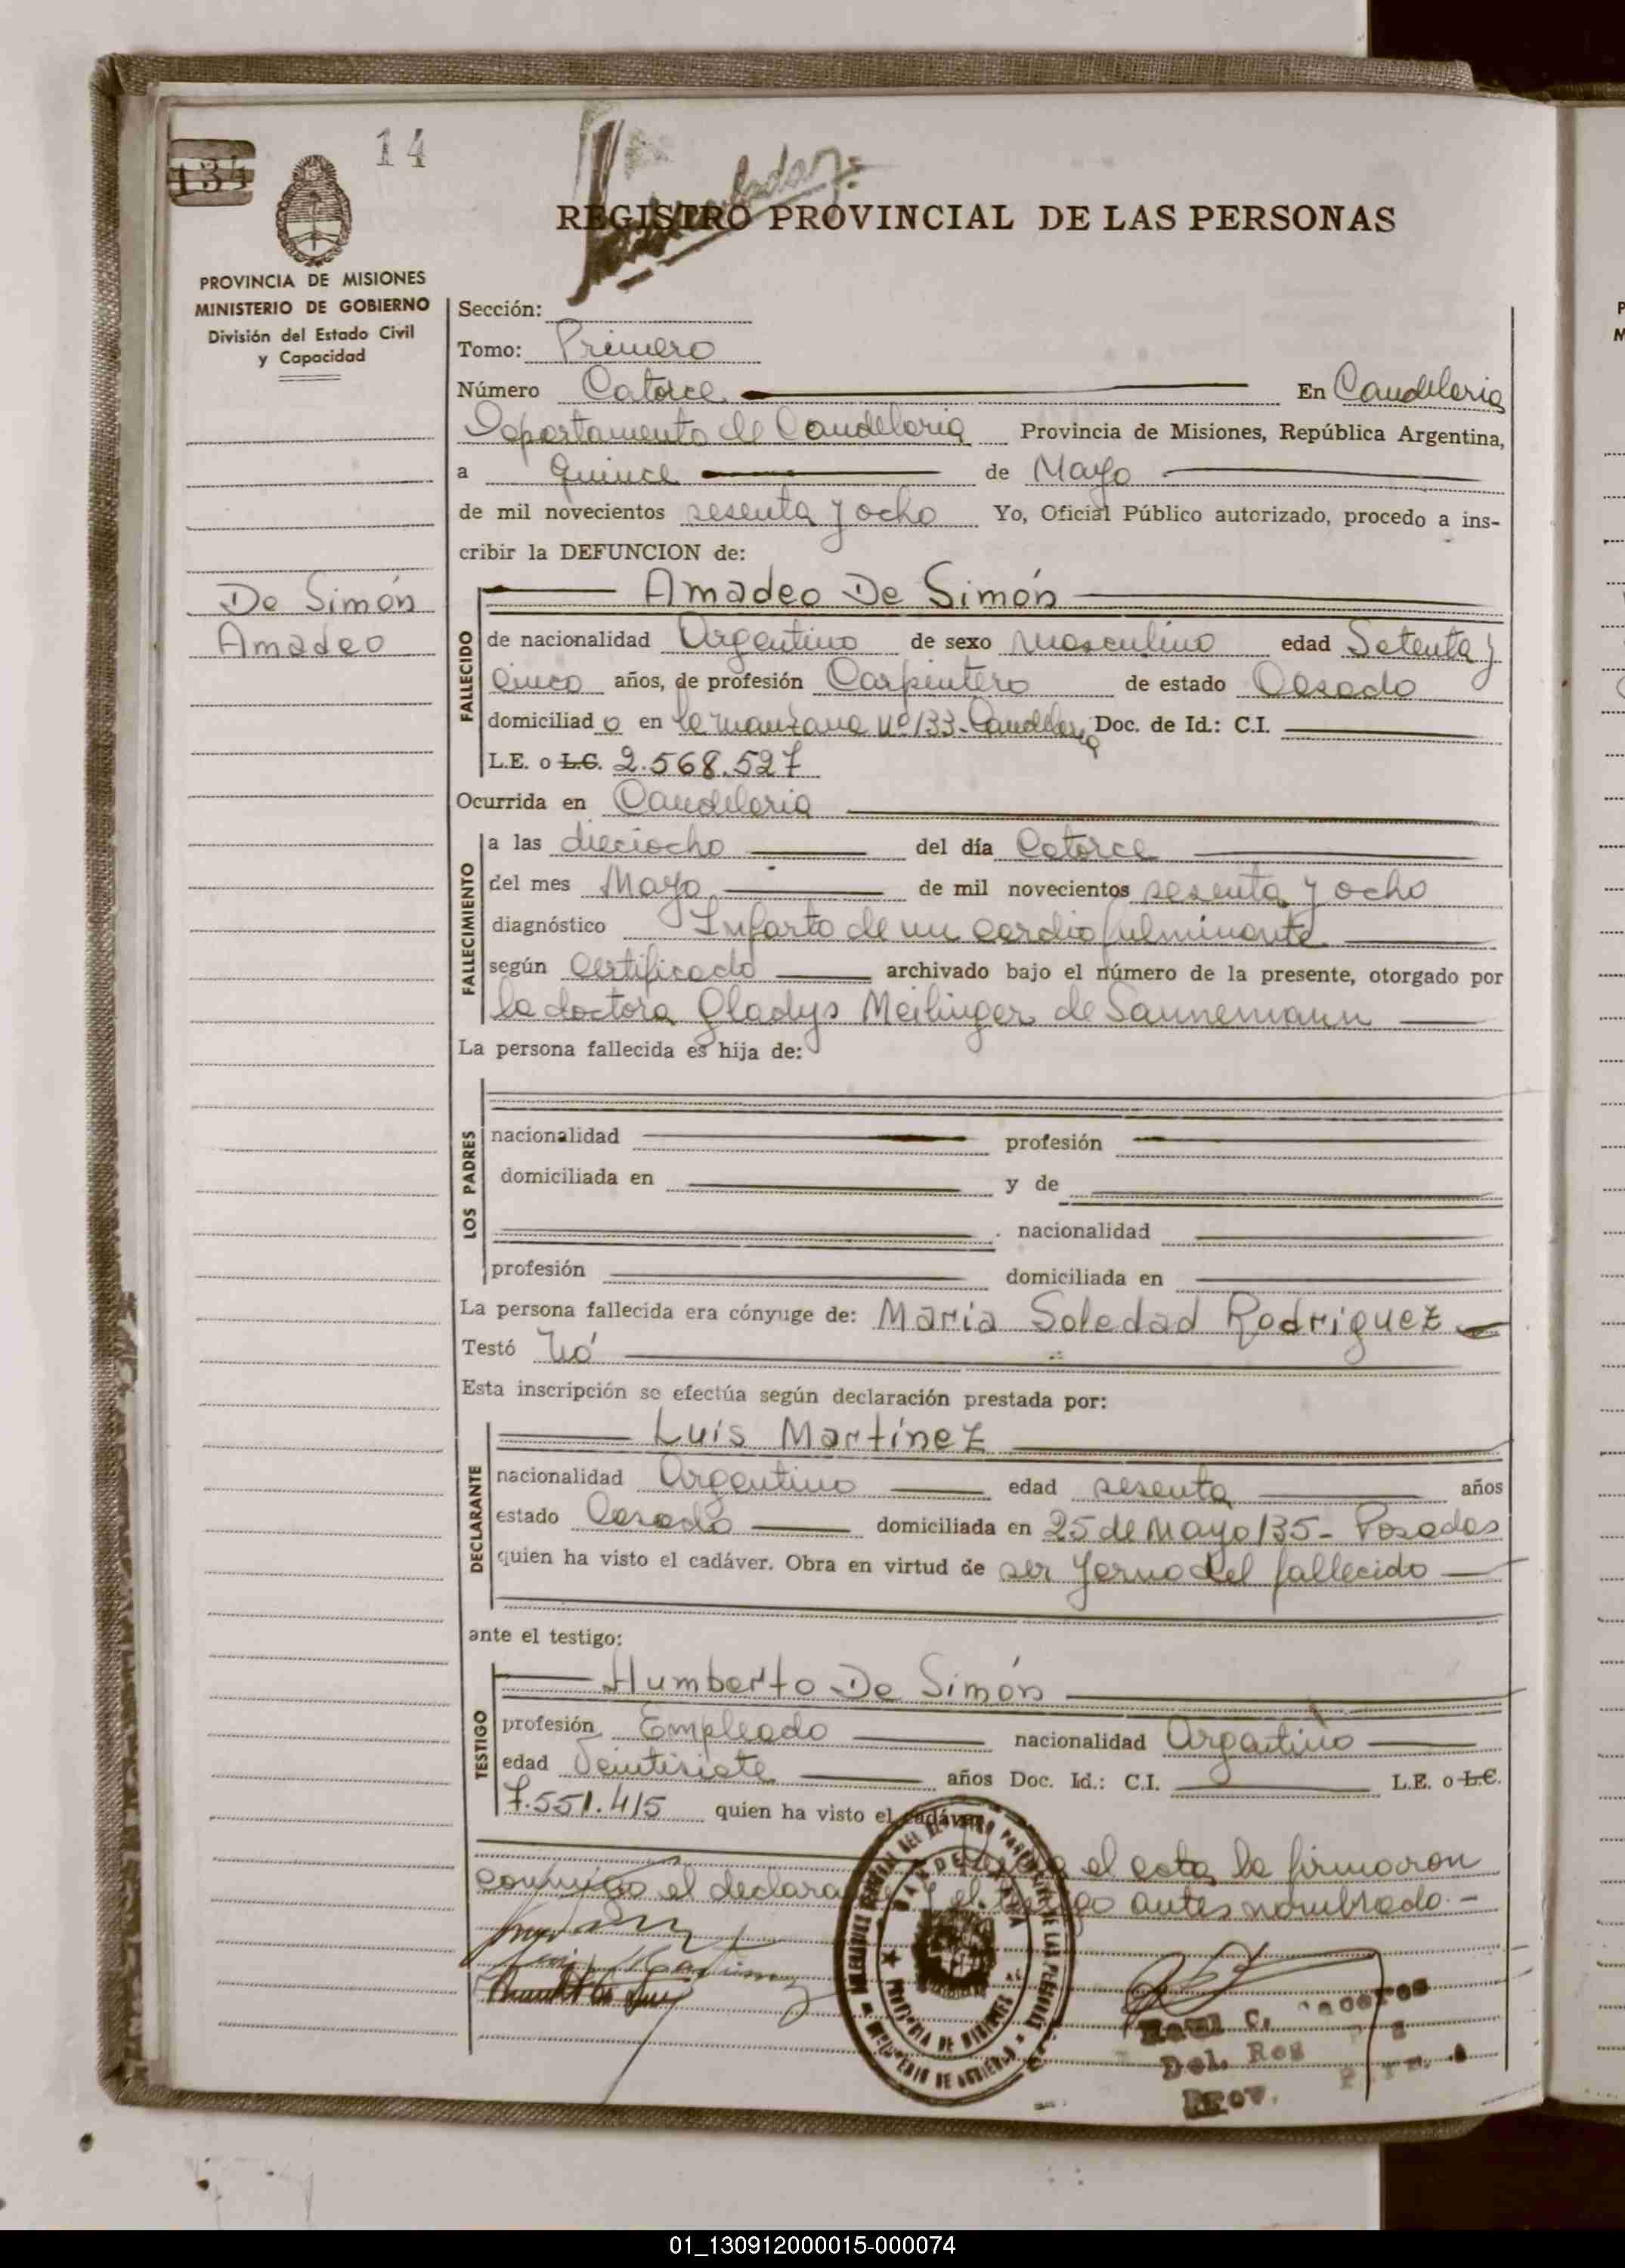 14
134
REGISTRO PROVINCIAL DE LAS PERSONAS
PROVINCIA DE MISIONES
MINISTERIO DE GOBIERNO
División del Estado Civil
y Capacidad
De Simón
Amadeo
Sección:
Tomo: Primero
Número Catorce En Candelaria
Departamento de Candelaria Provincia de Misiones, República Argentina,
a quince de Mayo
de mil novecientos sesenta y ocho Yo, Oficial Público autorizado, procedo a ins-
cribir la DEFUNCION de:
FALLECIDO
Amadeo De Simón
de nacionalidad Argentino de sexo masculino edad Setenta y
Cinco años, de profesión Carpintero de estado Casado
domiciliado en la manzana Nº 133-Candelaria Doc. de Id.: C.I.
L.E. o L.C. 2.568.527
Ocurrida en Candelaria
FALLECIMIENTO
a las dieciocho del día Catorce
del mes Mayo de mil novecientos sesenta y ocho
diagnóstico Infarto de miocardio fulminante
según Certificado archivado bajo el número de la presente, otorgado por
la doctora Gladys Meilinger de Sannemann
La persona fallecida es hija de:
LOS PADRES
nacionalidad profesión
domiciliada en y de
nacionalidad
profesión domiciliada en
La persona fallecida era cónyuge de: Maria Soledad Rodriguez
Testó Nó
Esta inscripción se efectúa según declaración prestada por:
DECLARANTE
Luis Martínez
nacionalidad Argentino edad sesenta años
estado Casado domiciliada en 25 de Mayo 135- Posadas
quien ha visto el cadáver. Obra en virtud de ser yerno del fallecido
ante el testigo:
TESTIGO
Humberto De Simón
profesión Empleado nacionalidad Argentino
edad Veintisiete años Doc. Id.: C.I. L.E. o L.C.
7.551.415 quien ha visto el cadáver
el acta la firmaron
conmigo el declarante y el testigo antes nombrado.-
CANDELARIA
PROVINCIA DE MISIONES
MINISTERIO DE GOBIERNO
Raul C.
Del. Reg
Prov.
01_130912000015-000074